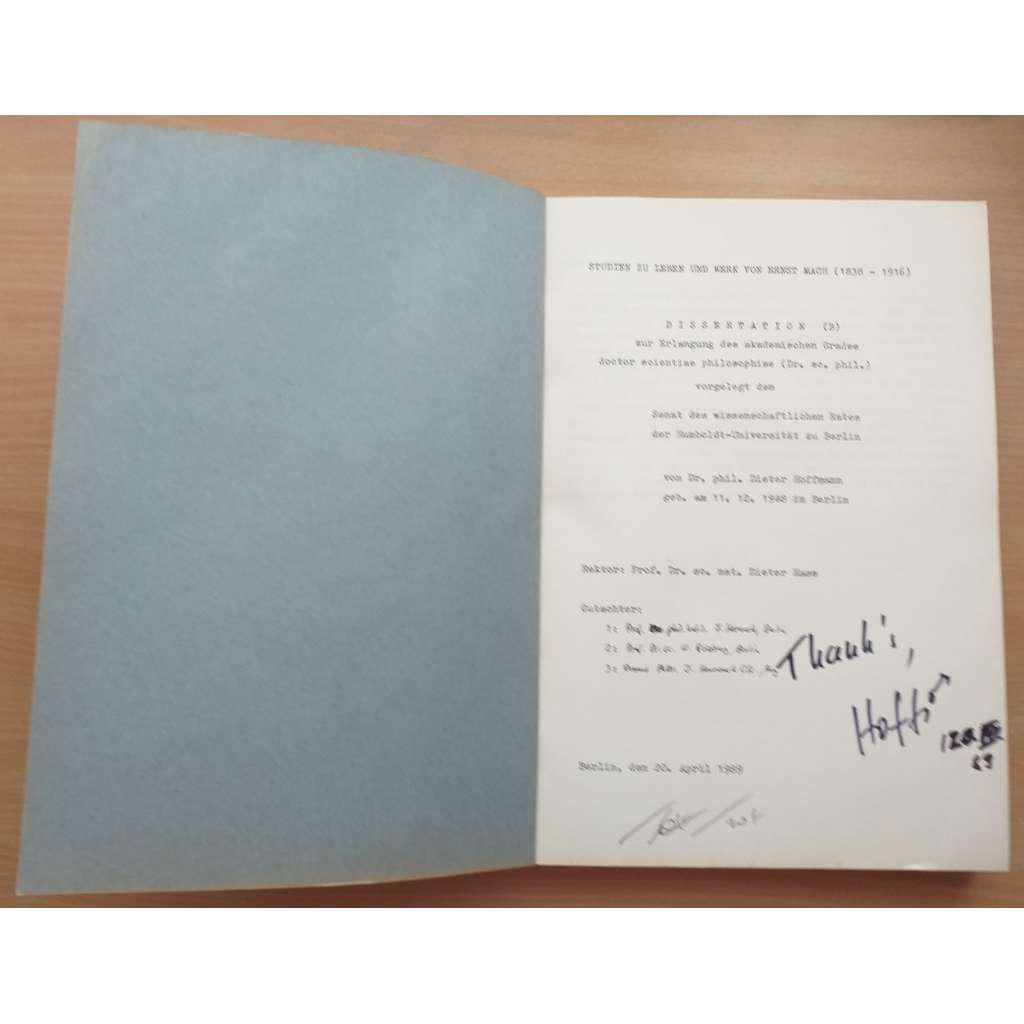 STUDIEN ZU LEBEN UND WERK VON ERNST MACH (1838 - 1916)
D I S S E R T A T I O N (B)
zur Erlangung des akademischen Grades
doctor scientiae philosophiae (Dr. sc. phil.)
vorgelegt dem
Senat des wissenschaftlichen Rates
der Humboldt-Universität zu Berlin
von Dr. phil. Dieter Hoffmann
geb. am 11. 12. 1948 in Berlin
Rektor: Prof. Dr. sc. nat. Dieter Hass
Gutachter:
1: Prof.
2: Prof. Dr. sc.
3:
Thank's,
Berlin, den 20. April 1989